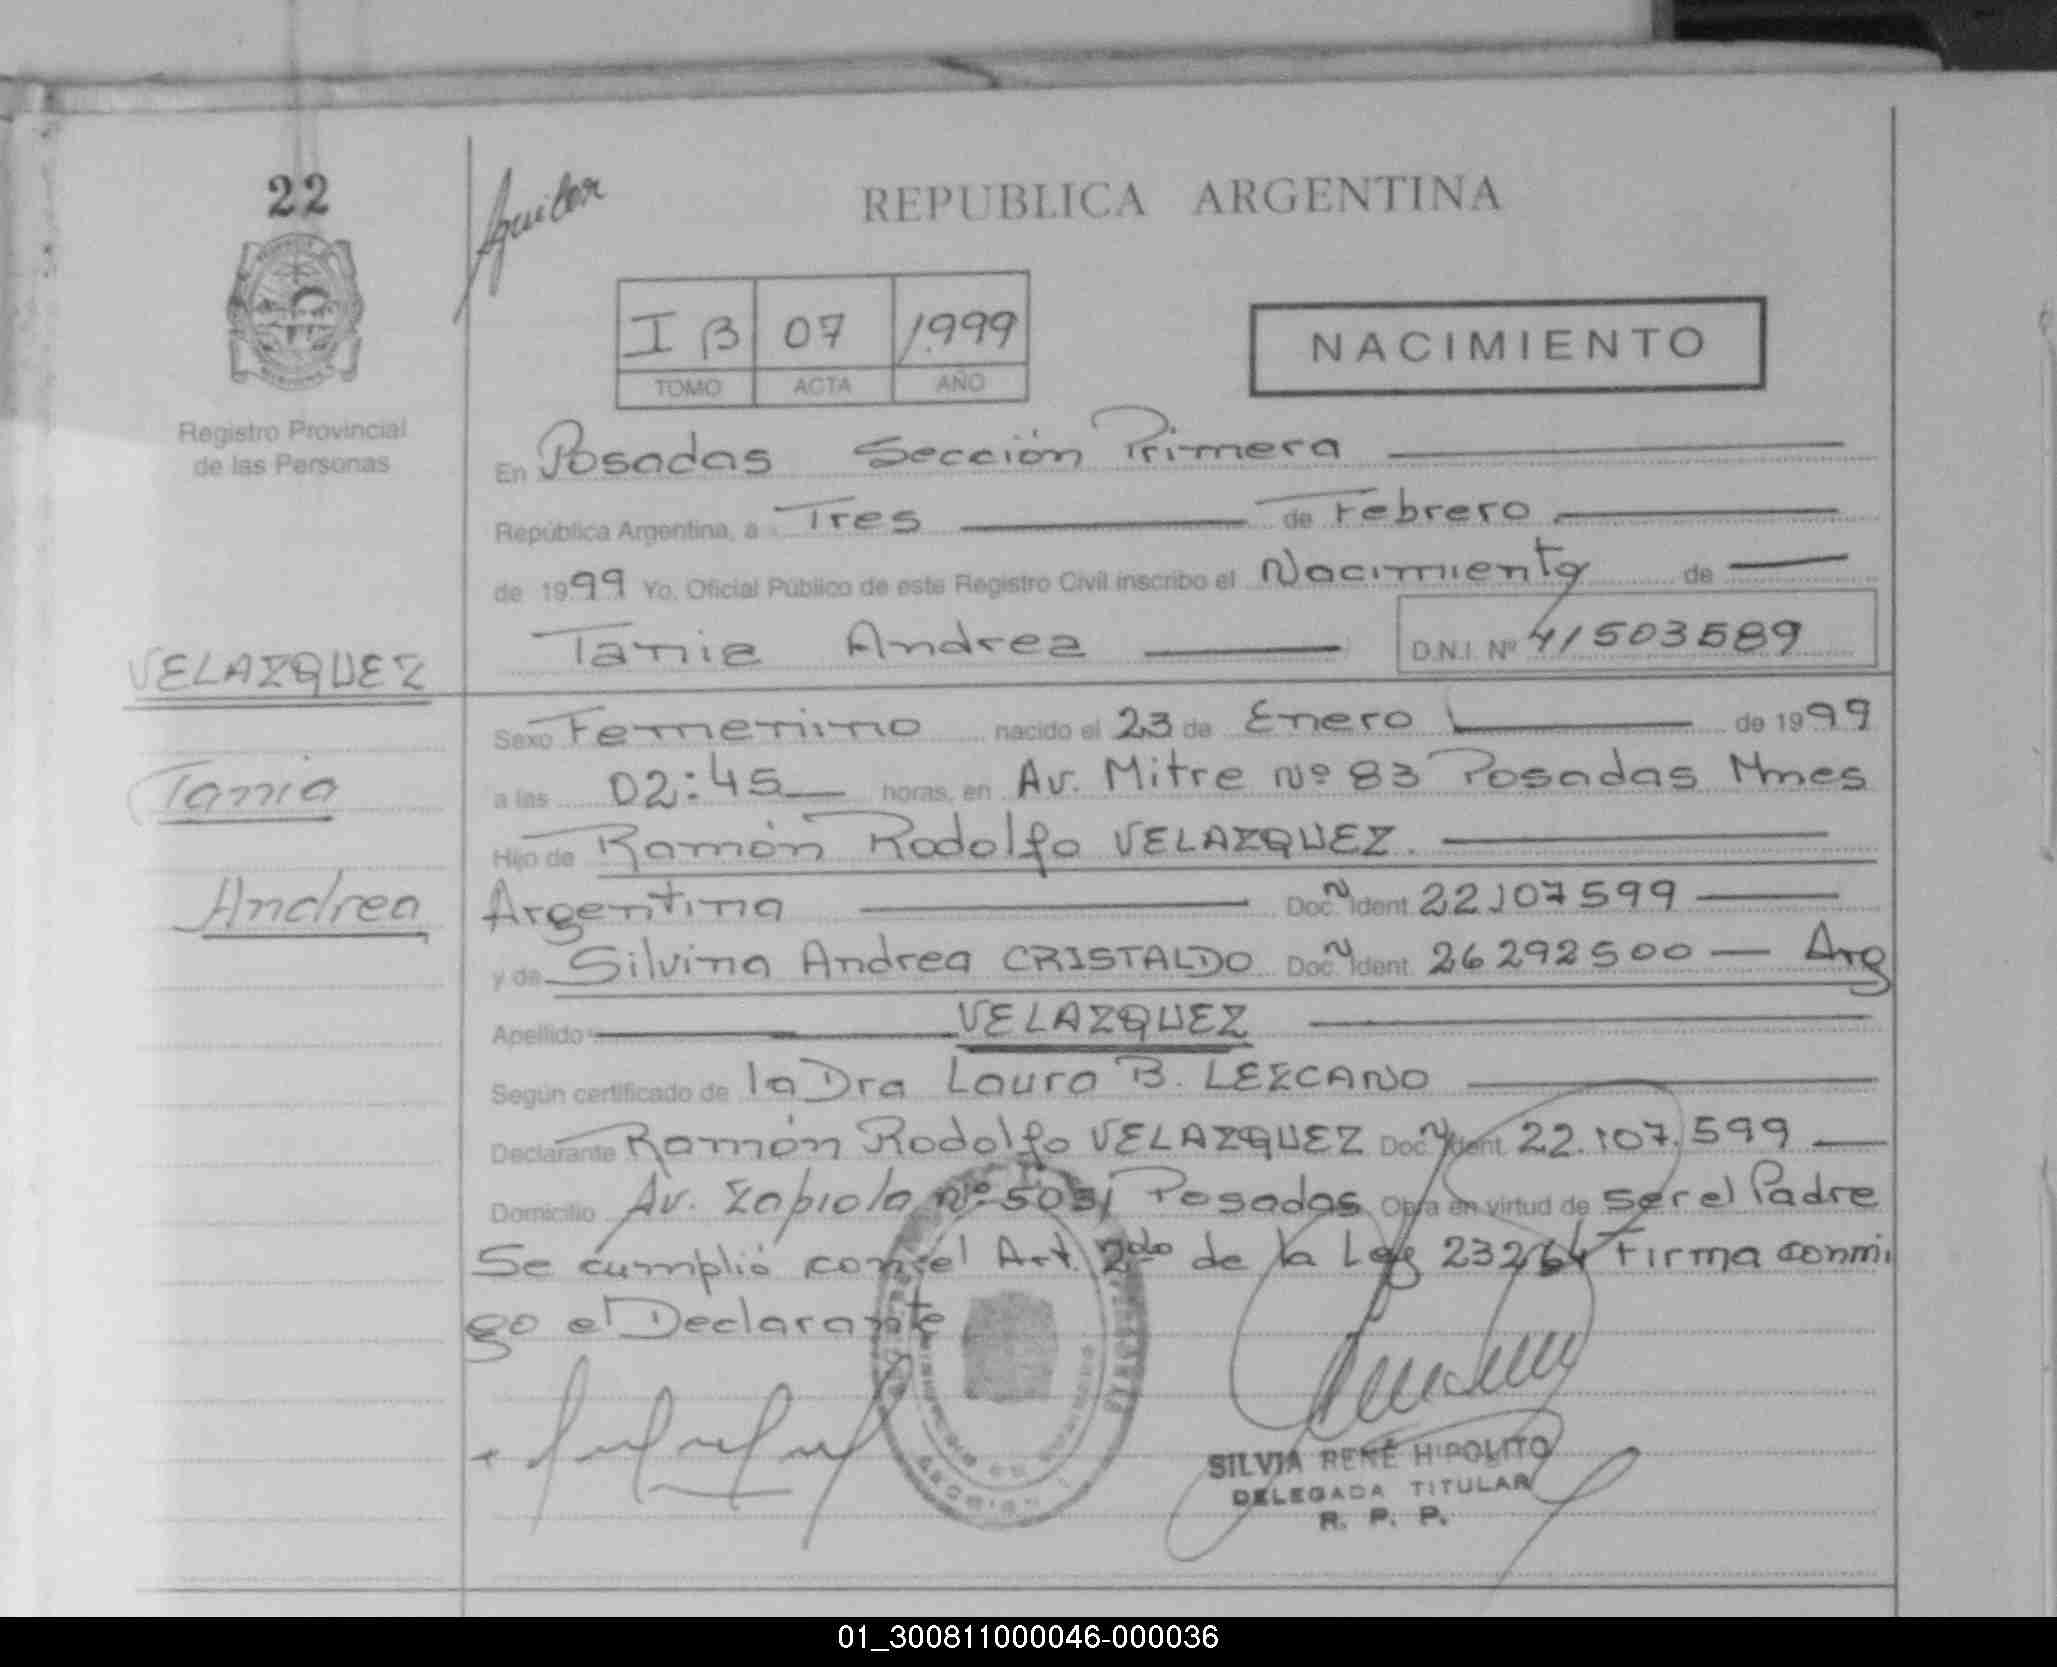 22
Aguilar
REPUBLICA ARGENTINA
I B 07 1.999
TOMO ACTA AÑO
NACIMIENTO
Registro Provincial
de las Personas
En Posadas Sección Primera
República Argentina, a Tres de Febrero
de 1999 Yo, Oficial Público de este Registro Civil inscribo el Nacimiento de
Tania Andrea D.N.I. Nº 41503589
VELAZQUEZ
Tania
Andrea
Sexo Femenino nacido el 23 de Enero de 1999
a las 02:45 horas, en Av. Mitre Nº 83 Posadas Mnes
Hijo de Ramón Rodolfo VELAZQUEZ.
Argentina Doc. Ident. 22107599
y de Silvina Andrea CRISTALDO Doc. Ident. 26292500 — Arg
Apellido VELAZQUEZ
Según certificado de la Dra Laura B. LEZCANO
Declarante Ramón Rodolfo VELAZQUEZ Doc. Ident. 22.107.599
Domicilio Av. Zapiola Nº 5031 Posadas Obra en virtud de ser el Padre
Se cumplió con el Art. 2do de la Ley 23264 Firma conmi
go el Declarante
SILVIA RENÉ HIPOLITO
DELEGADA TITULAR
R. P. P.
01_300811000046-000036